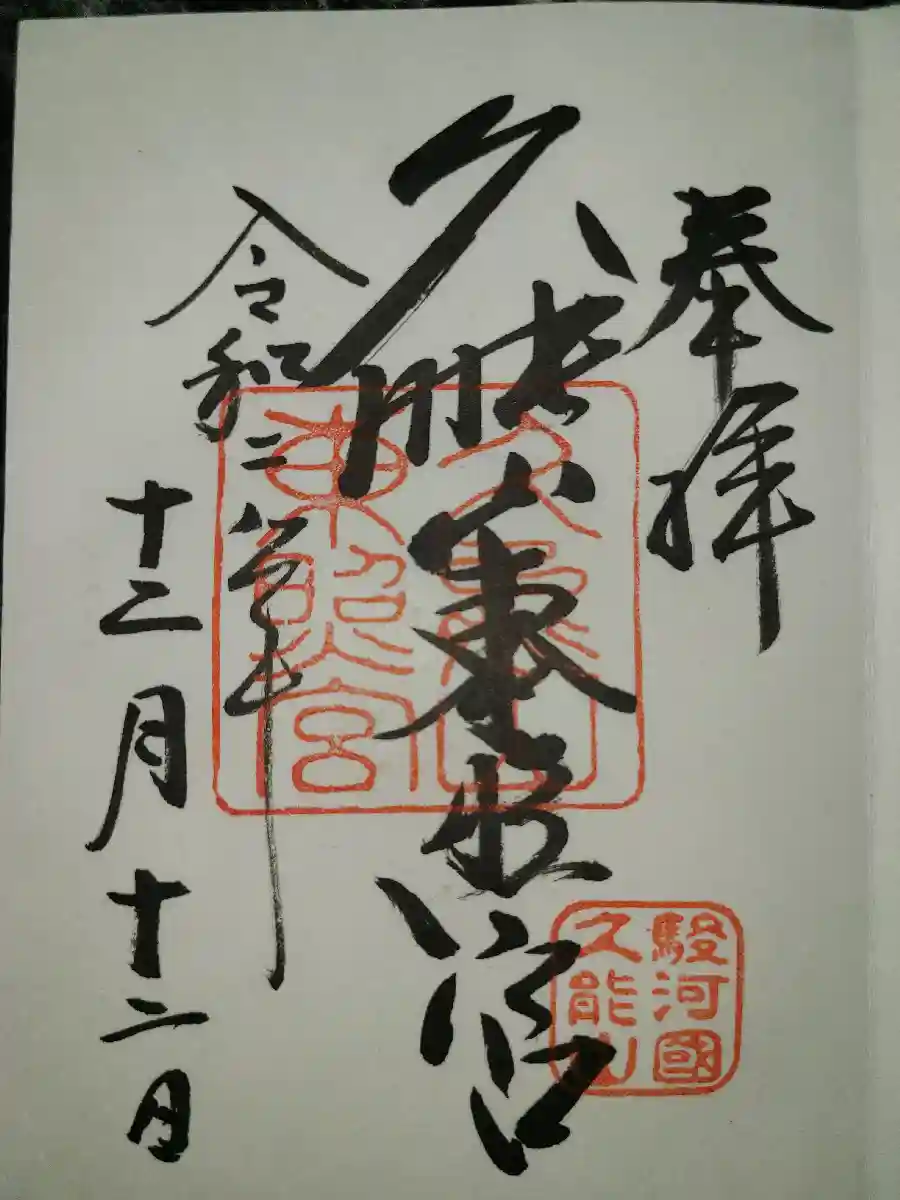 奉拝
久能山東照宮
令和二年
十二月十二日
久能山
東照宮
駿河國
久能山